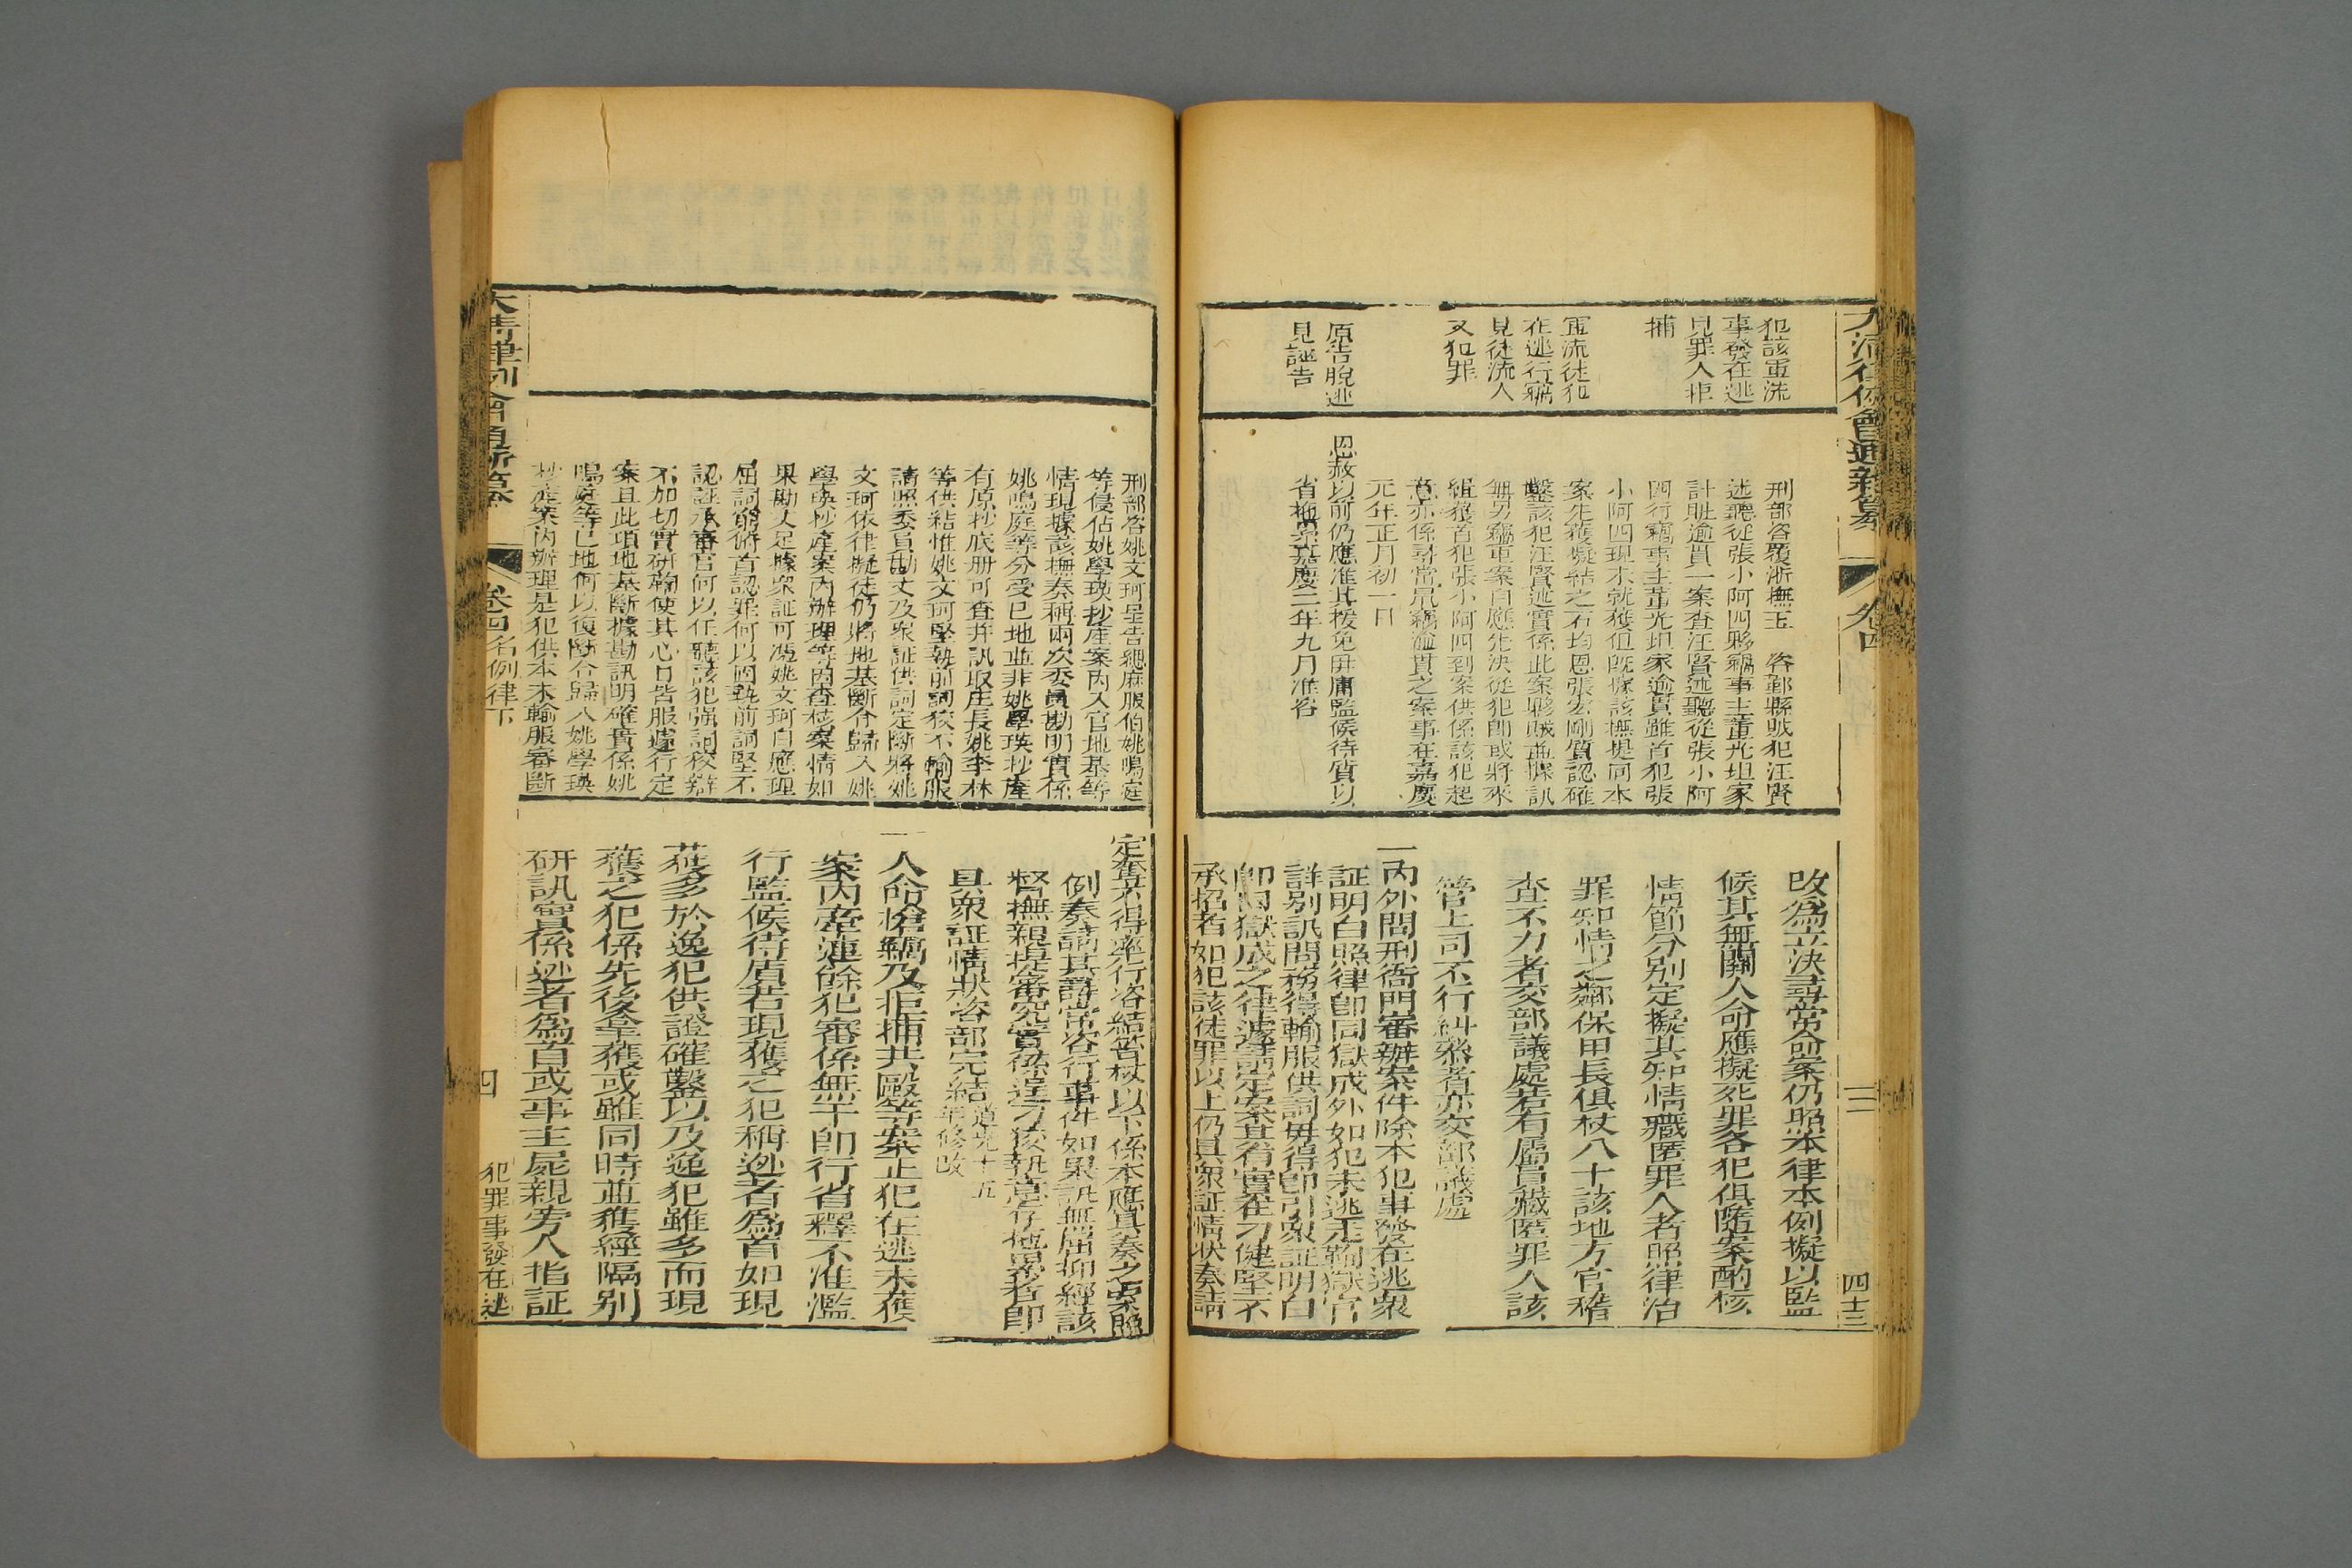 大清律例會通新纂
卷四
四十三
犯該軍流
事發在逃
見罪人拒
捕
軍流徒犯
在逃行竊
見徒流人
又犯罪
原告脫逃
見誣告
刑部咨覆浙撫玉 咨鄞縣賊犯汪賢
述聽從張小阿四夥竊事主董光坦家
計贓逾貫一案查汪賢述聽從張小阿
四行竊事主董光坦家逾貫雖首犯張
小阿四現未就獲但既據該撫與同本
案先獲擬結之石均恩張宏剛質認確
鑿該犯汪賢述實係此案夥賊並據訊
無另竊重案自應先決從犯即或將來
緝獲首犯張小阿四到案供係該犯起
意亦係尋常鼠竊逾貫之案事在嘉慶
元年正月初一日
恩赦以前仍應准其援免毋庸監候待質以
省拖累嘉慶二年九月准咨
改爲立決尋常命案仍照本律本例擬以監
候其無關人命應擬死罪各犯俱隨案酌核
情節分别定擬其知情藏匿罪人者照律治
罪知情之鄰保甲長俱杖八十該地方官稽
查不力者交部議處若有屬員藏匿罪人該
管上司不行糾叅者亦交部議處
一內外問刑衙門審辦案件除本犯事發在逃衆
証明白照律卽同獄成外如犯未逃走鞫獄官
詳别訊問務得輸服供詞毋得卽引衆証明白
卽同獄成之律遽請定案其有實在刁健堅不
承招者如犯該徒罪以上仍具衆証情狀奏請
刑部咨姚文珂呈告緦麻服伯姚鳴庭
等侵佔姚學瑛抄產案內入官地基等
情現據該撫奏稱兩次委員勘明實係
姚鳴庭等分受已地並非姚學瑛抄產
有原抄底册可查并訊取庄長姚李林
等供結惟姚文珂堅執前詞狡不輸服
請照委員勘丈及衆証供詞定斷將姚
文珂依律擬徒仍將地基斷令歸入姚
學瑛抄產案內辦理等因查核案情如
果勘丈足據衆証可憑姚文珂自應理
屈詞窮俯首認罪何以固執前詞堅不
認証承審官何以任聽該犯强詞狡辯
不加切實研鞫使其心口皆服遽行定
案且此項地基斷據勘訊明確實係姚
鳴庭等已地何以復斷令歸入姚學瑛
抄產案內辦理是犯供本未輸服審斷
定奪不得率行咨結笞杖以下係本應具奏之案照
例奏請其尋常咨行事件如果訊無屈抑經該
督撫親提審究實係逞刁狡執意存拖累者卽
具衆証情狀咨部完結
道光十五
年修改
一人命搶竊及拒捕共毆等案正犯在逃未獲
案內牽連餘犯審係無干卽行省釋不准濫
行監候待質若現獲之犯稱逃者爲首如現
獲多於逸犯供證確鑿以及逸犯雖多而現
獲之犯係先後拿獲或雖同時並獲經隔别
研訊實係逃者爲首或事主屍親旁人指証
大清律例會通新纂
卷四名例律下
四
犯罪事發在逃